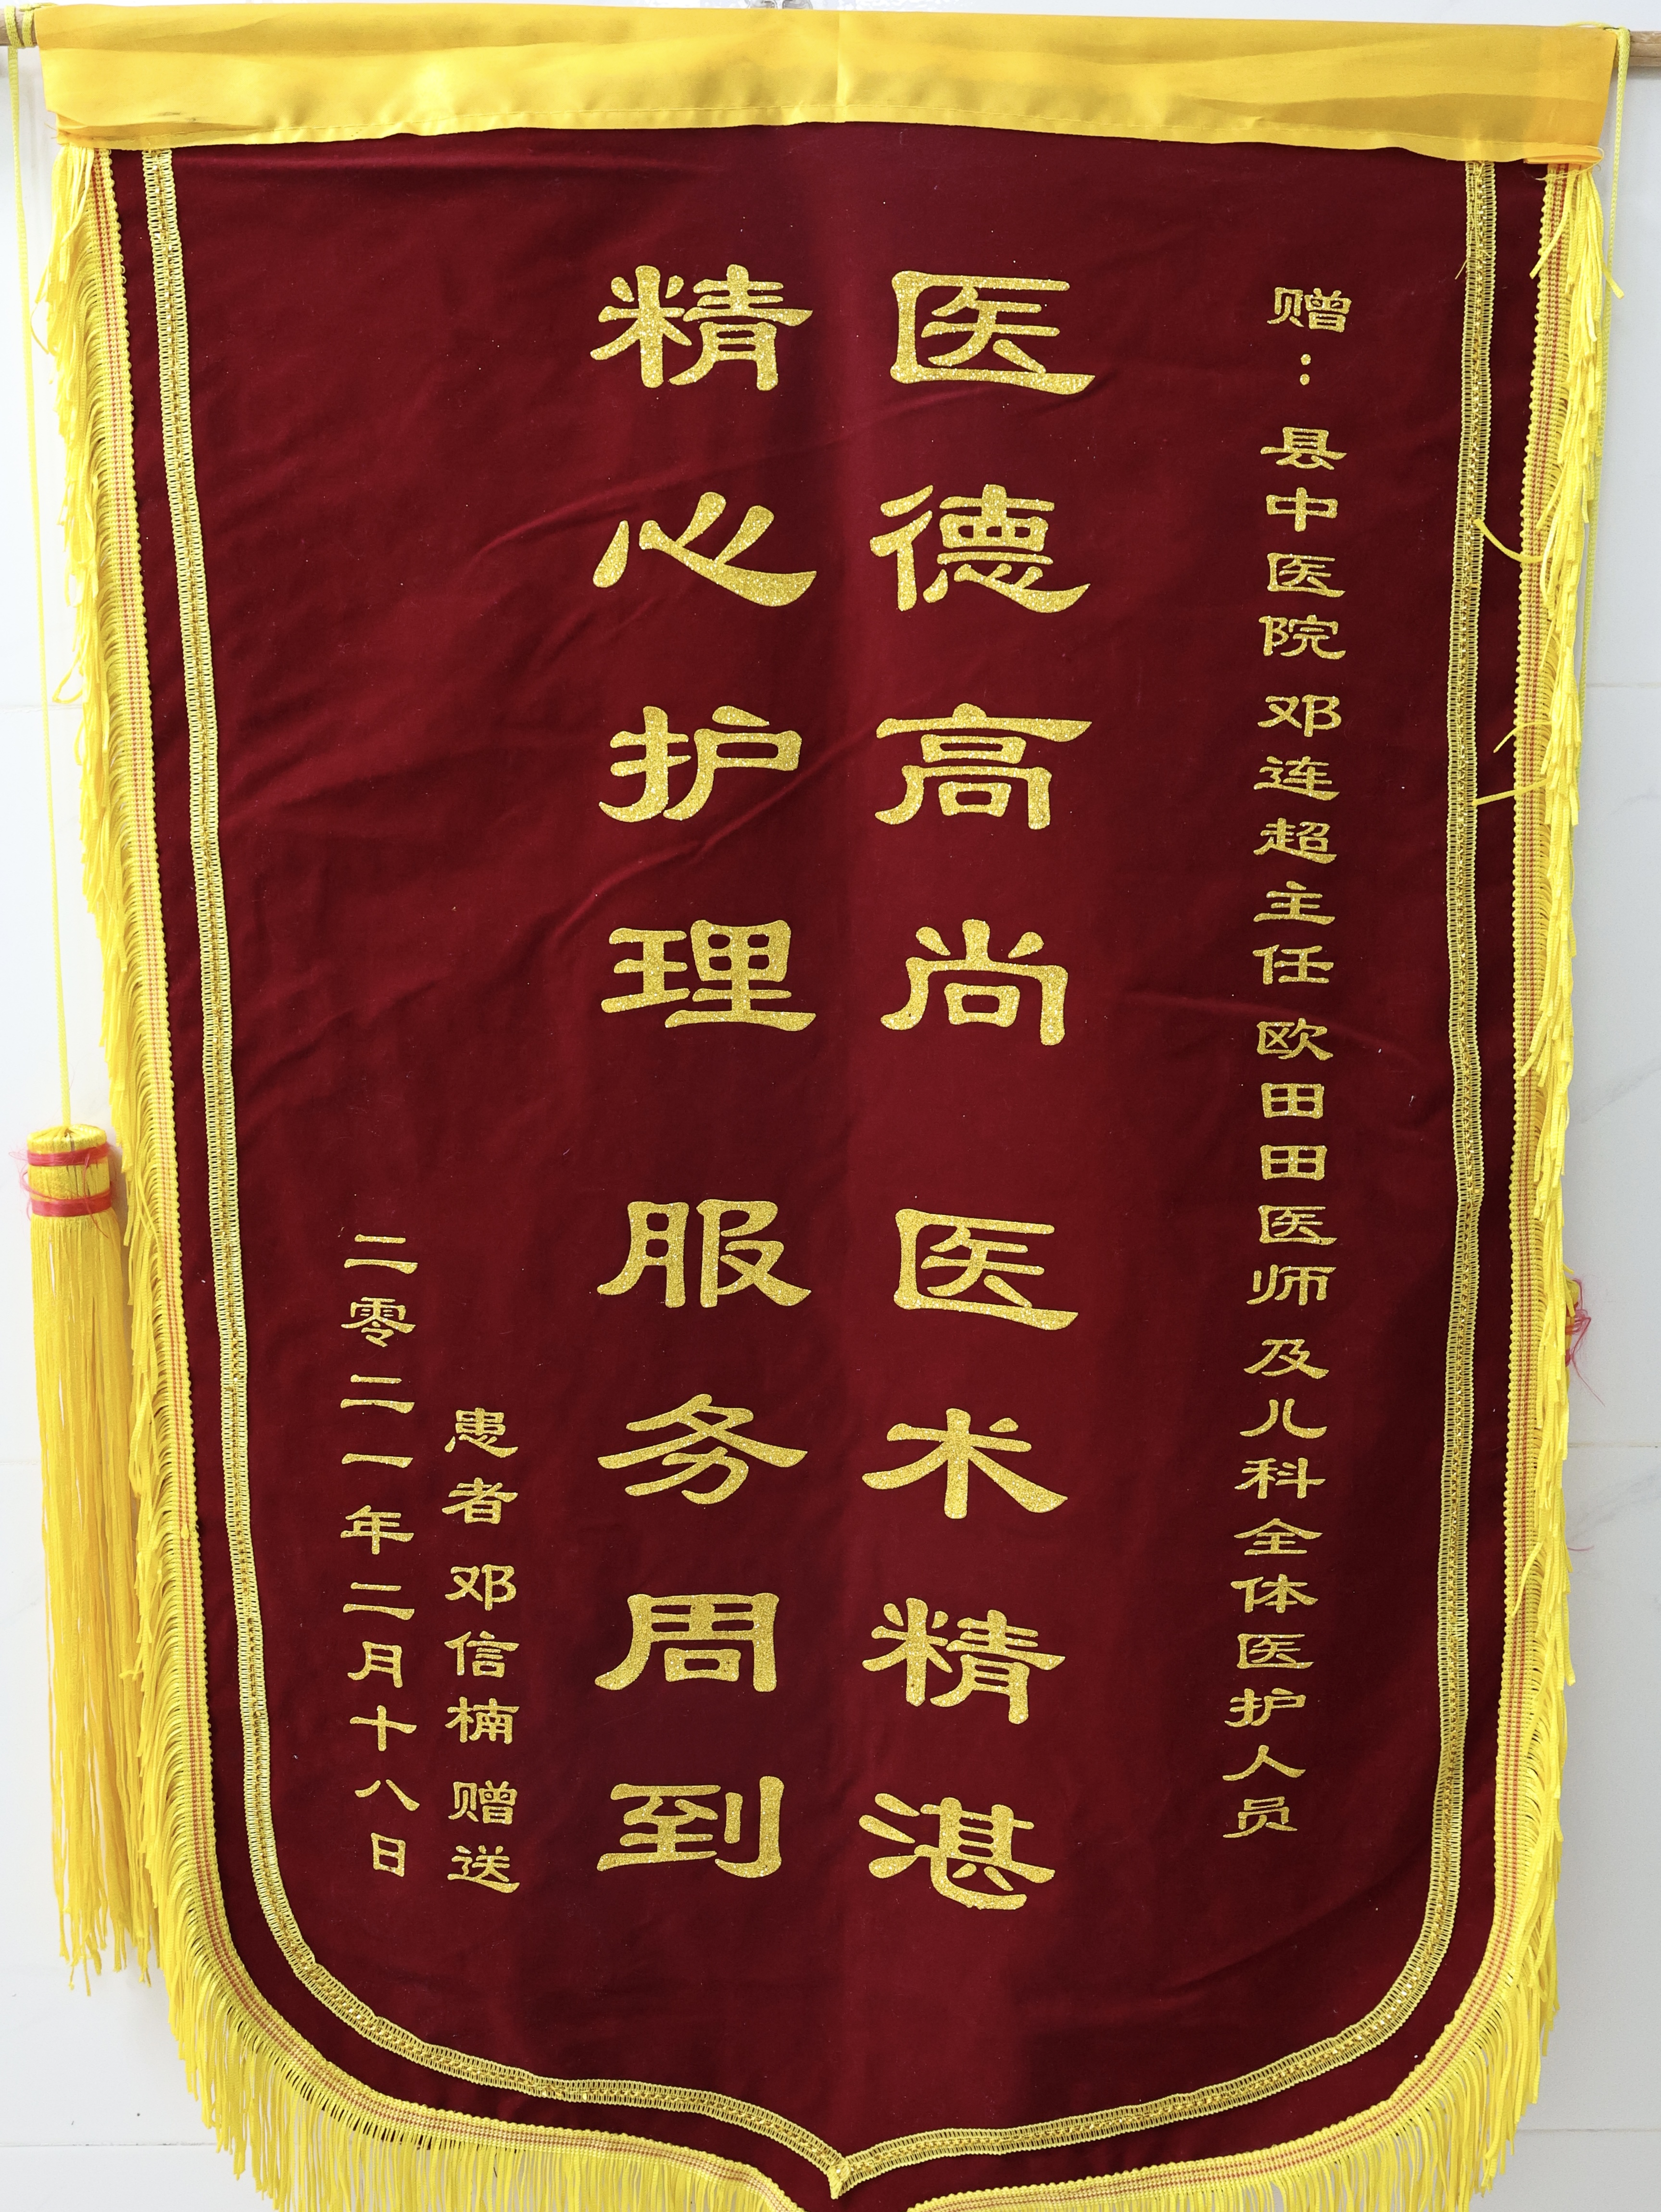 赠：县中医院 邓连超主任 欧田田医师 及儿科全体医护人员
医德高尚 医术精湛
精心护理 服务周到
患者 邓信楠 赠送
二零二一年二月十八日